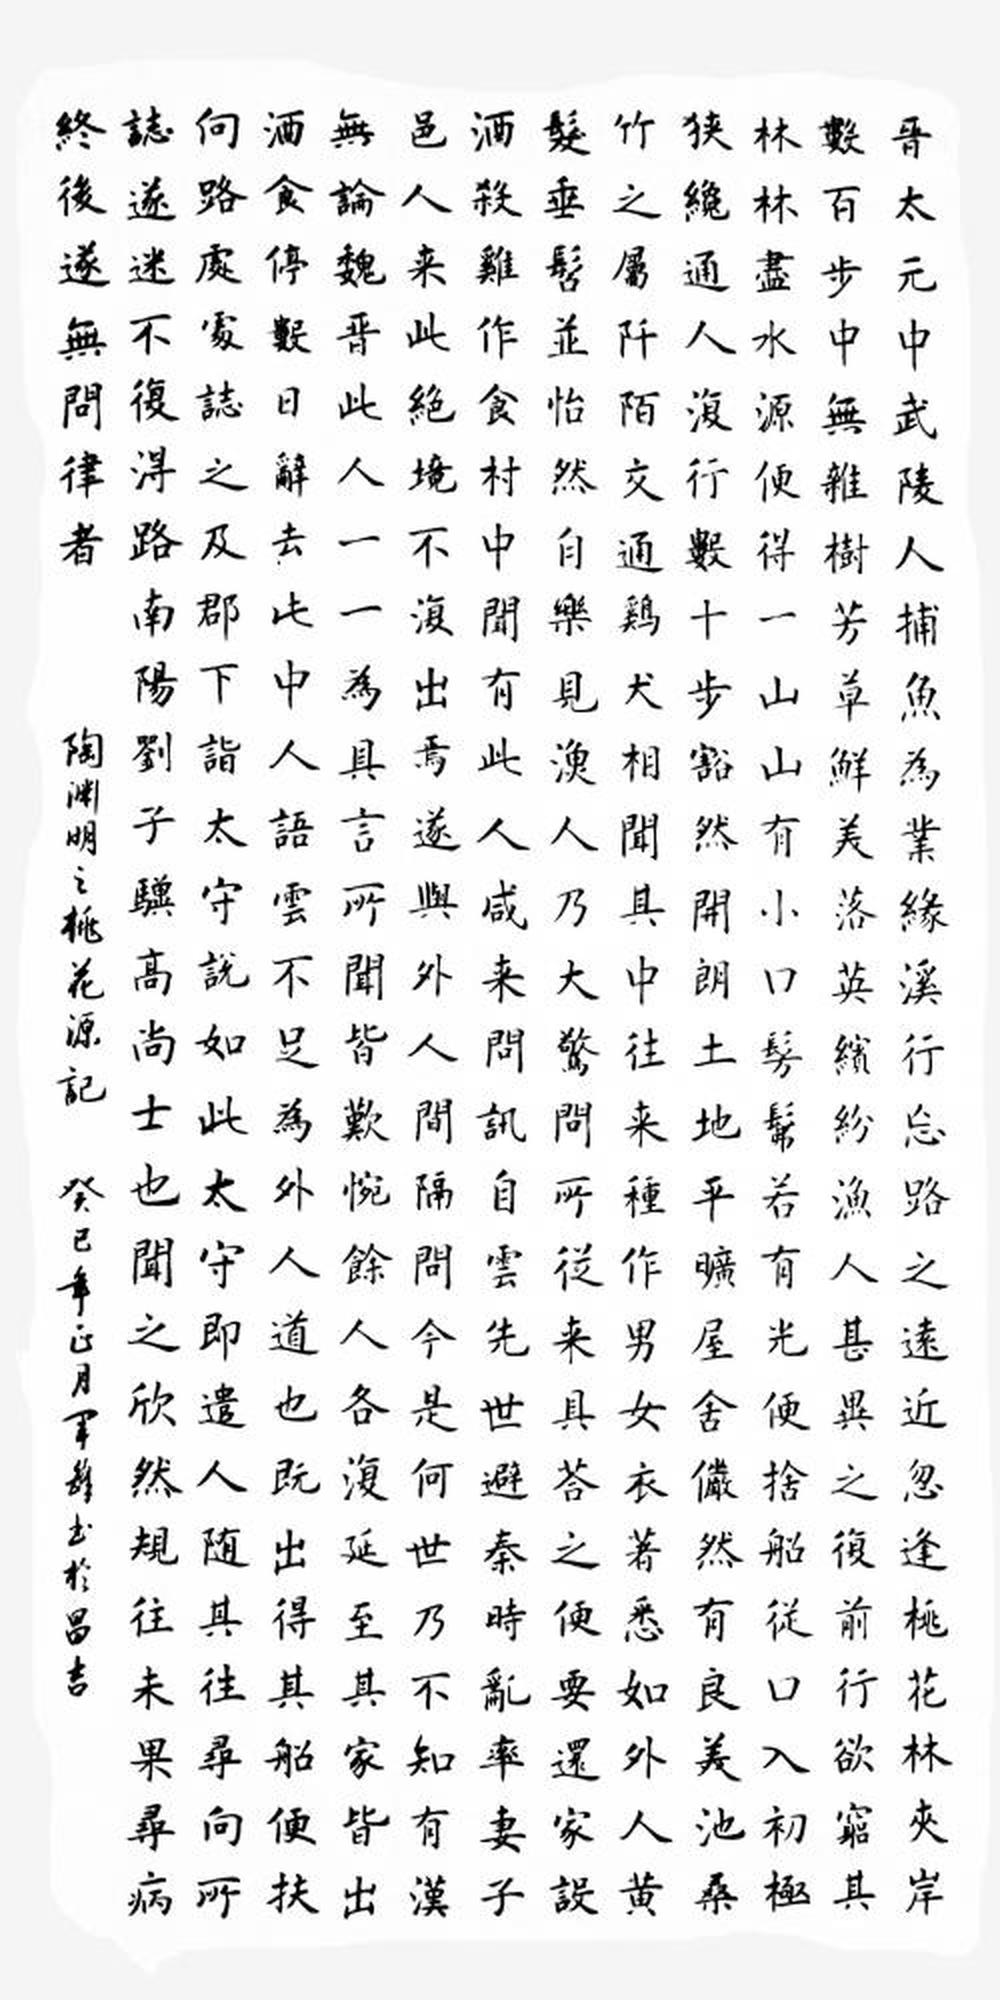 晉太元中武陵人捕魚為業緣溪行忘路之遠近忽逢桃花林夾岸
數百步中無雜樹芳草鮮美落英繽紛漁人甚異之復前行欲窮其
林林盡水源便得一山山有小口髣髴若有光便捨船從口入初極
狹纔通人復行數十步豁然開朗土地平曠屋舍儼然有良美池桑
竹之屬阡陌交通鷄犬相聞其中往来種作男女衣著悉如外人黃
髮垂髫並怡然自樂見漁人乃大驚問所從来具荅之便要還家設
酒殺雞作食村中聞有此人咸来問訊自雲先世避秦時亂率妻子
邑人来此絕境不復出焉遂與外人間隔問今是何世乃不知有漢
無論魏晉此人一一為具言所聞皆歎惋餘人各復延至其家皆出
酒食停數日辭去此中人語雲不足為外人道也既出得其船便扶
向路處處誌之及郡下詣太守說如此太守即遣人随其往尋向所
誌遂迷不復得路南陽劉子驥高尚士也聞之欣然規往未果尋病
終後遂無問津者
陶淵明之桃花源記 癸巳年正月軍雄书於昌吉